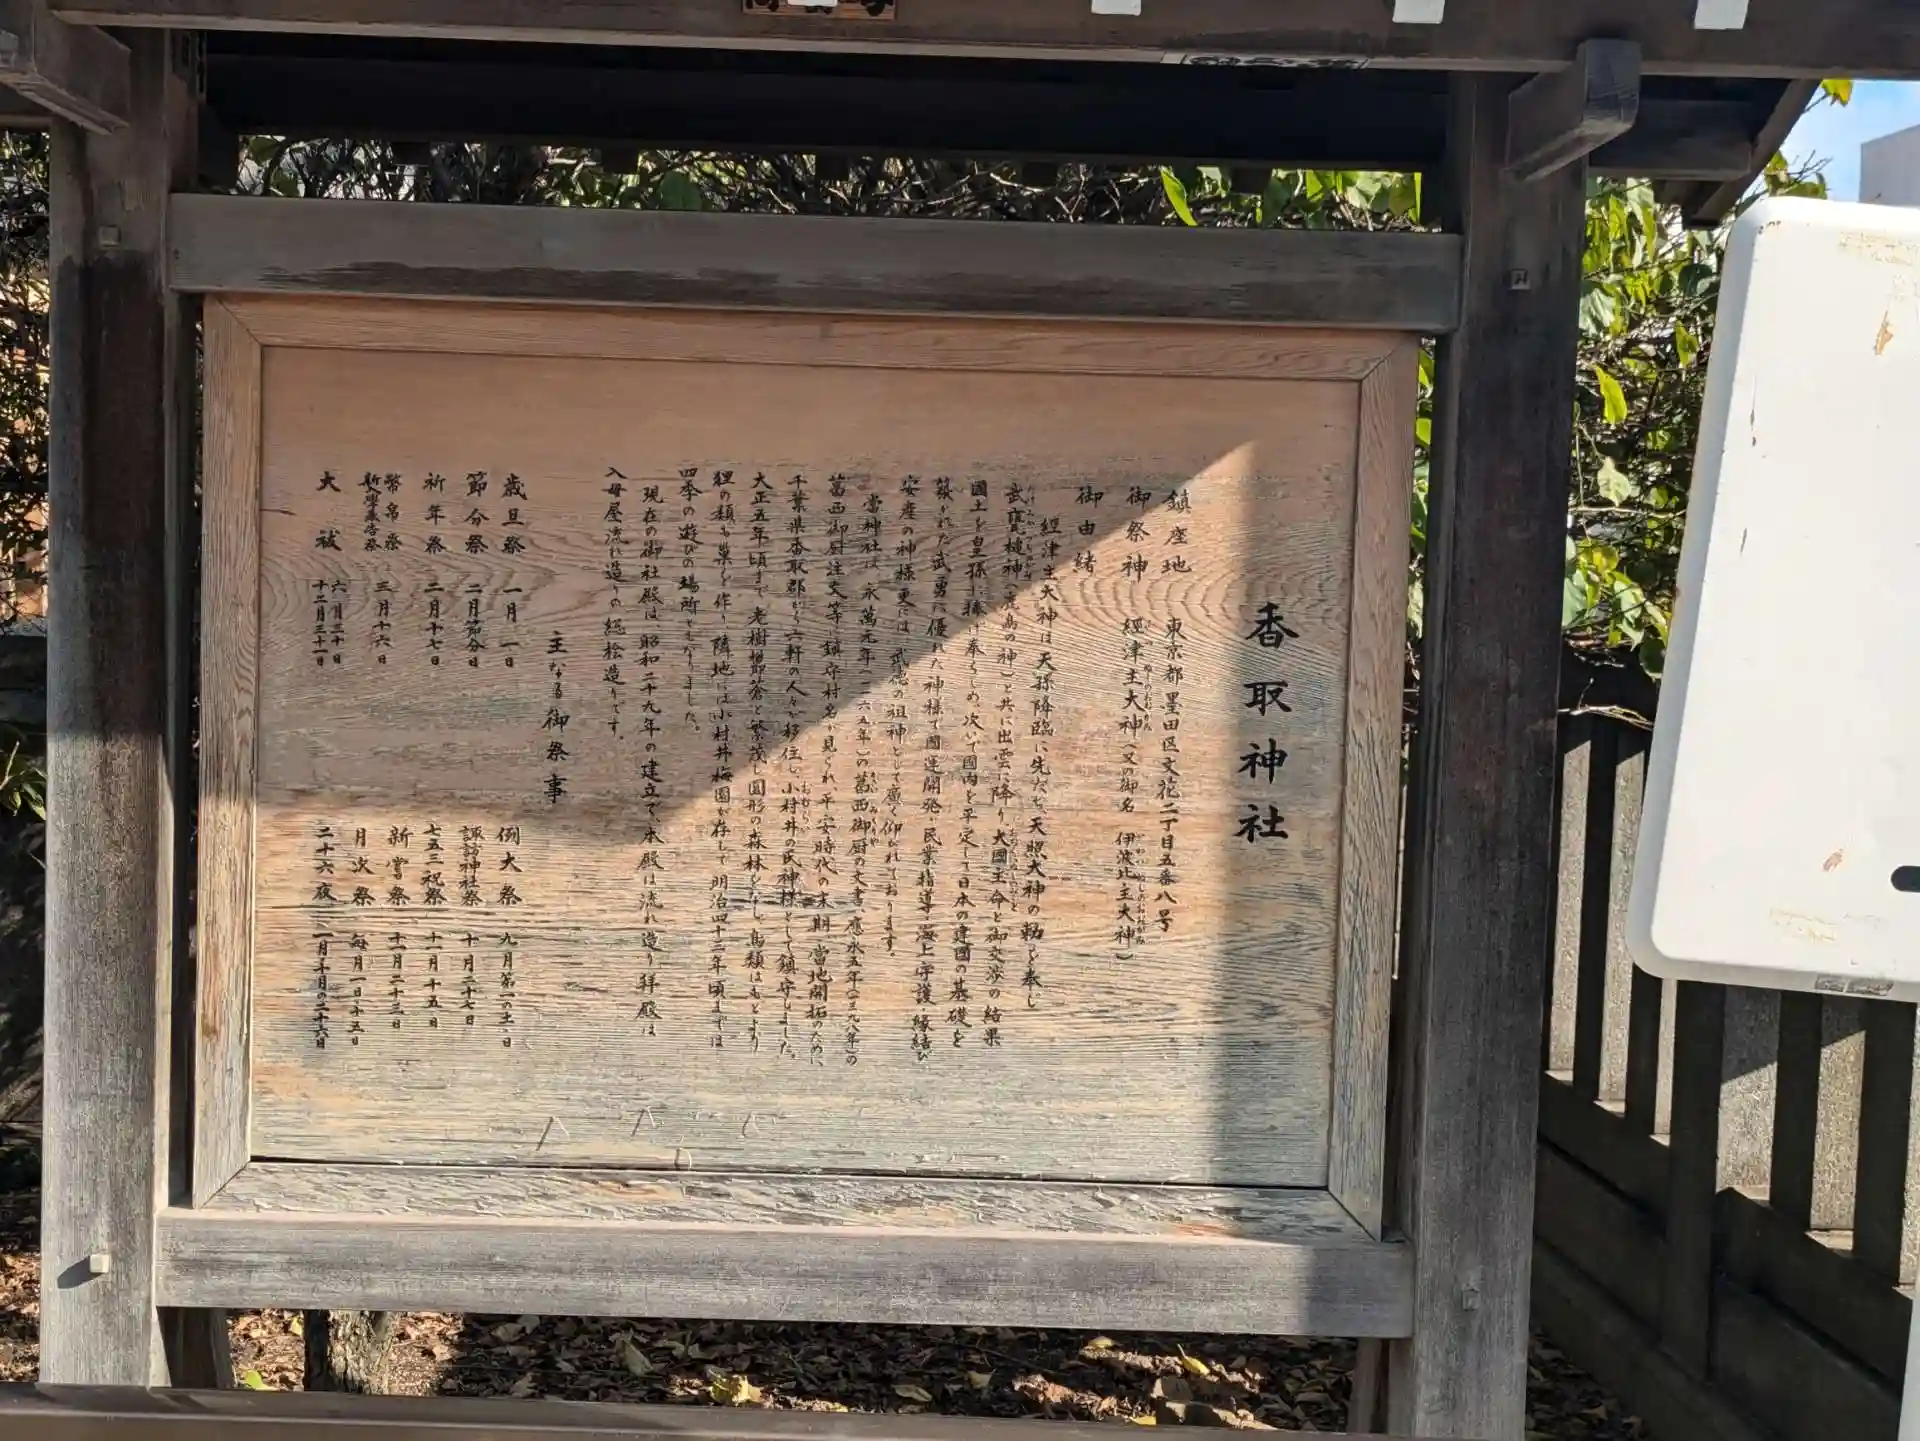 香取神社
鎮座地 東京都墨田区文花二丁目五番八号
御祭神 經津主大神(又の御名 伊波比主大神)
御由緒
經津主大神は天孫降臨に先だち、天照大神の勅を奉じ
武甕槌神(鹿島の神)と共に出雲に降り、大國主命と御交渉の結果
國土を皇孫に捧げ奉らしめ、次いで國内を平定して日本の建國の基礎を
築かれた武勇に優れた神様で國運開発、民業指導、海上守護、縁結び
安産の神様更には、武徳の祖神として廣く仰がれております。
當神社は、永萬元年(一一六五年)の葛西御厨の文書、應永五年(一三九八年)の
葛西御厨注文等に鎮守村名が見られ、平安時代の末期、當地開拓のために
千葉県香取郡から六軒の人々が移住し、小村井の氏神様として鎮守しました。
大正五年頃まで、老樹欝蒼と繁茂し園形の森林をなし、鳥類はもとより
狸の類も巣を作り、隣地には小村井梅園が存して、明治四十三年頃までは
四季の遊びの場所ともなりました。
現在の御社殿は、昭和二十九年の建立で、本殿は流れ造り、拝殿は
入母屋流れ造りの総桧造りです。
主なる御祭事
歳旦祭 一月一日
節分祭 二月節分日
祈年祭 二月十七日
幣帛祭 三月十六日
大祓 六月三十日
十二月三十一日
例大祭 九月第一の土、日
諏訪神社祭 十月二十七日
七五三祝祭 十一月十五日
新嘗祭 十一月二十三日
月次祭 毎月一日、十五日
二十六夜